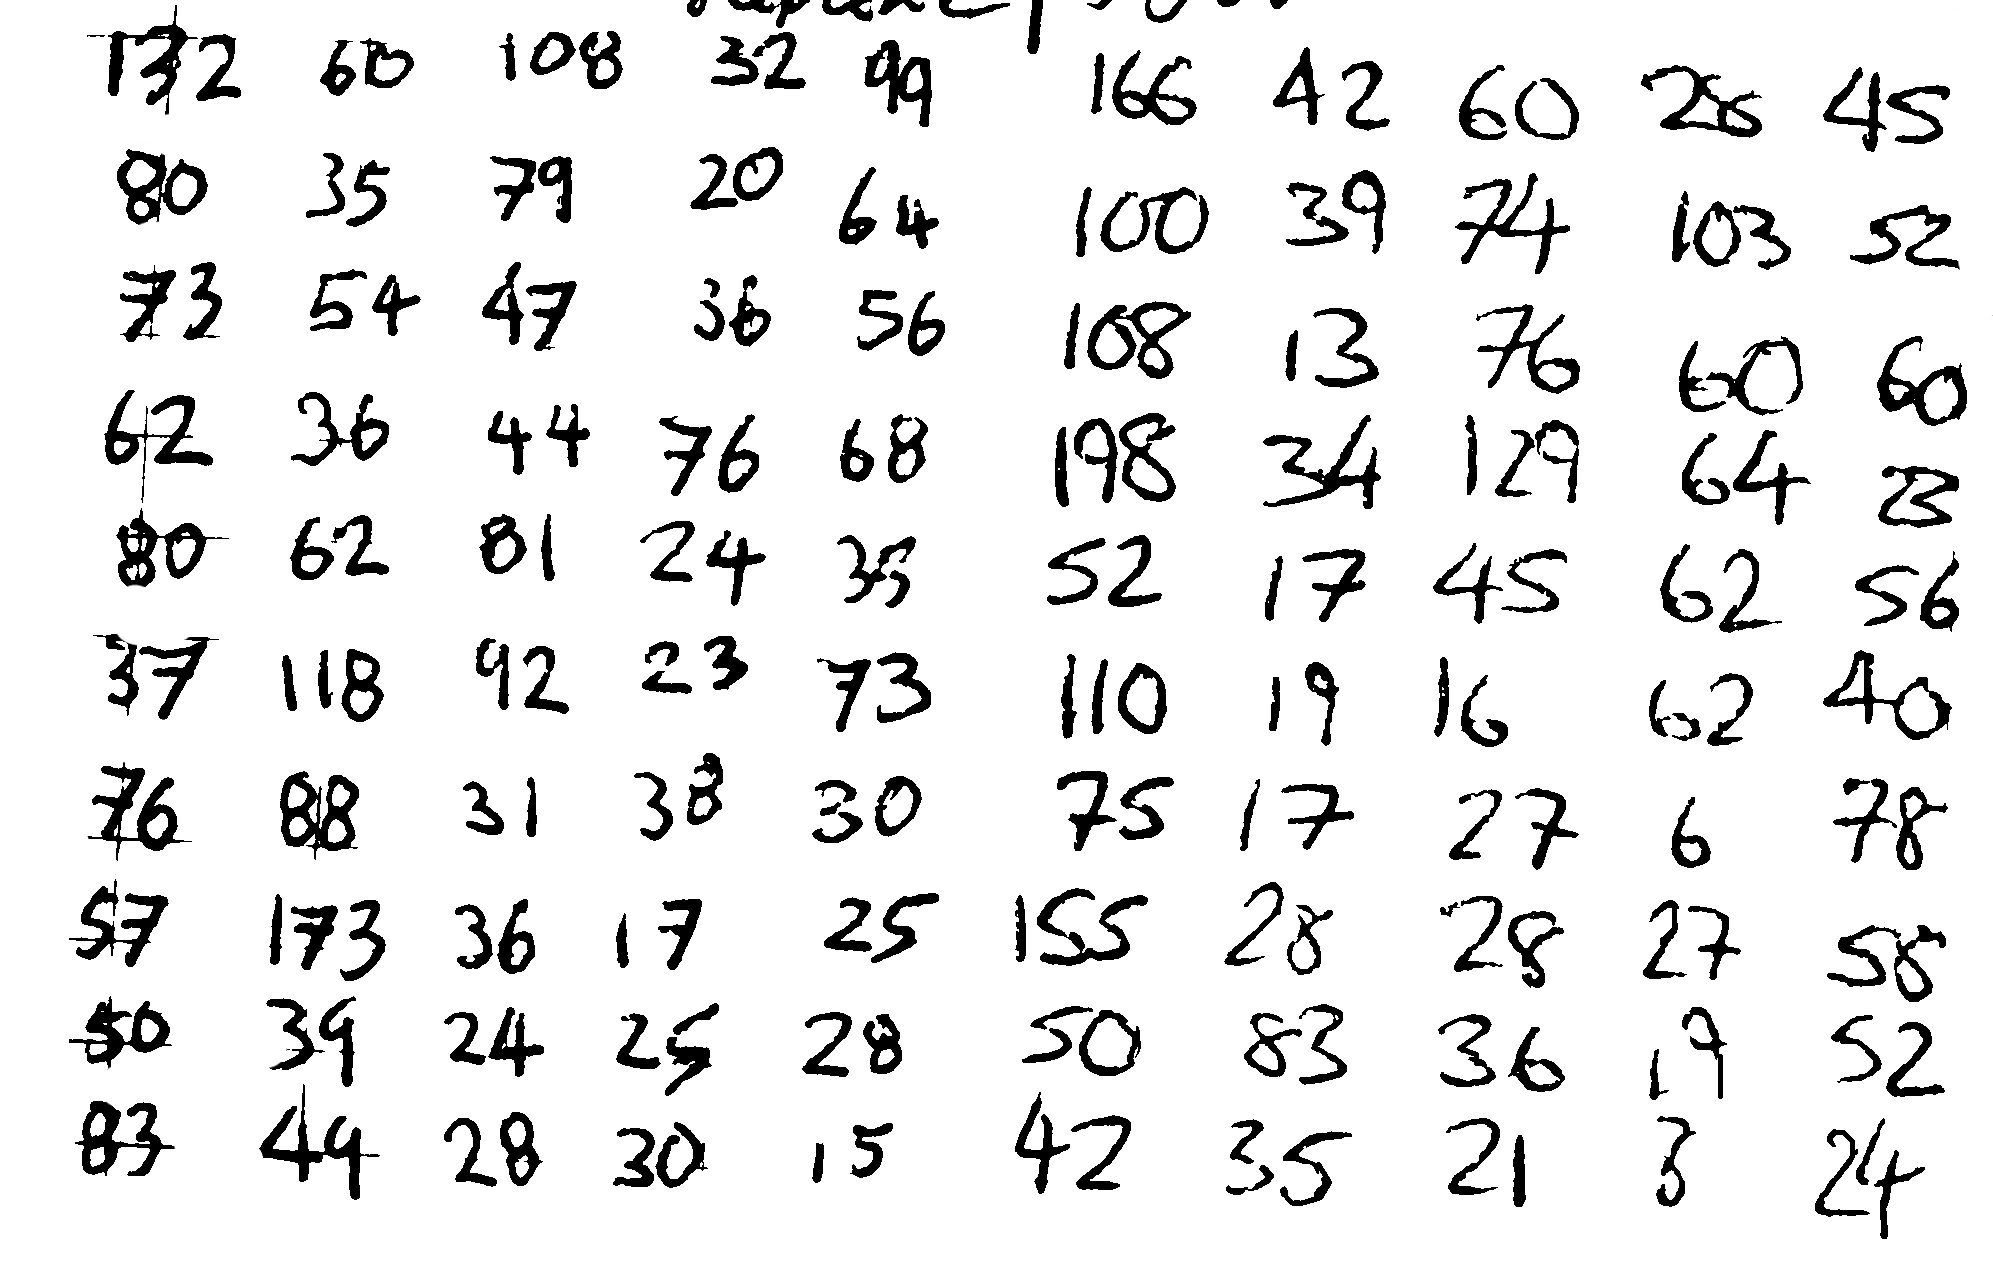 132 60 108 32 99 166 42 60 26 45
80 35 79 20 64 100 39 74 103 52
73 54 47 36 56 108 13 76 60 60
62 36 44 76 68 198 34 129 64 23
80 62 81 24 35 52 17 45 62 56
37 118 92 23 73 110 19 16 62 40
76 88 31 38 30 75 17 27 6 78
57 173 36 17 25 155 28 28 27 58
50 39 24 25 28 50 83 36 19 52
83 49 28 30 15 42 35 21 3 24